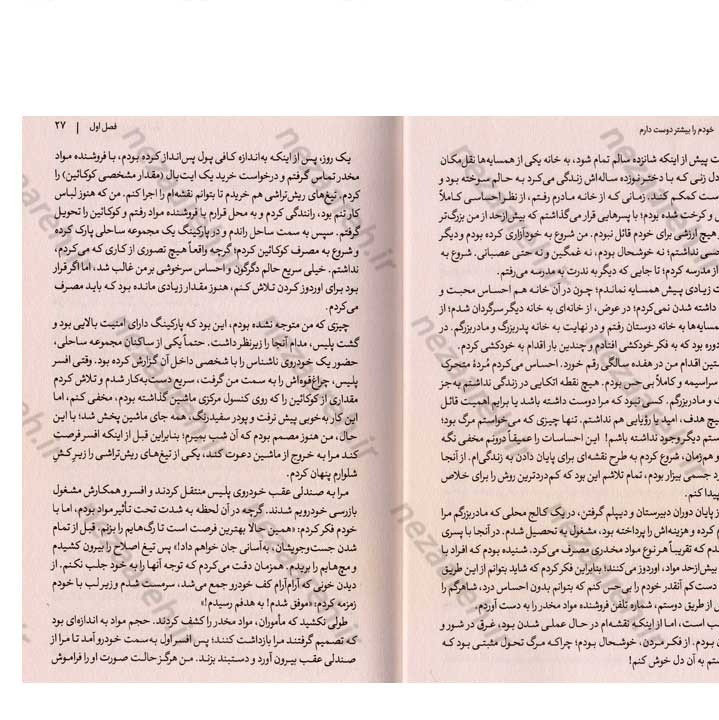 خودم را بیشتر دوست دارم
ت پیش از اینکه شانزده سالم تمام شود، به خانه یکی از همسایه‌ها نقل‌مکان
دل زنی که با دختر نوزده ساله‌اش زندگی می‌کرد به حالم سوخته بود و
ست کمکم کند. زمانی که از خانه مادرم رفتم، از نظر احساسی کاملاً
و کرخت شده بودم؛ با پسرهایی قرار می‌گذاشتم که بیش‌ازحد از من بزرگ‌تر
هیچ ارزشی برای خودم قائل نبودم. من شروع به خودآزاری کرده بودم و دیگر
حسی نداشتم؛ نه خوشحال بودم، نه غمگین و نه حتی عصبانی. شروع به
از مدرسه کردم؛ تا جایی که دیگر به ندرت به مدرسه می‌رفتم.
ت زیادی پیش همسایه نماندم؛ چون در آن خانه هم احساس محبت و
داشته شدن نمی‌کردم؛ در عوض، از خانه‌ای به خانه دیگر سرگردان شدم؛ از
مسایه‌ها به خانه دوستان رفتم و در نهایت به خانه پدربزرگ و مادربزرگم. در
دوره بود که به فکر خودکشی افتادم و چندین بار اقدام به خودکشی کردم.
ستین اقدام من در هفده سالگی رقم خورد. احساس می‌کردم مُردۀ متحرک
سراسیمه و کاملاً بی‌حس بودم. هیچ نقطه اتکایی در زندگی نداشتم به‌جز
گ و مادربزرگم. کسی نبود که مرا دوست داشته باشد یا برایم اهمیت قائل
یچ هدف، امید یا رؤیایی هم نداشتم. تنها چیزی که می‌خواستم مرگ بود؛
ستم دیگر وجود نداشته باشم! این احساسات را عمیقاً درونم مخفی نگه
و هم‌زمان، شروع کردم به طرح نقشه‌ای برای پایان دادن به زندگی‌ام. از آنجا
رد جسمی بیزار بودم، تمام تلاشم این بود که کم‌دردترین روش را برای خلاص
پیدا کنم.
ز پایان دوران دبیرستان و دیپلم گرفتن، در یک کالج محلی که مادربزرگم مرا
م کرده و هزینه‌اش را پرداخته بود، مشغول به تحصیل شدم. در آنجا با پسری
دم که تقریباً هر نوع مواد مخدری مصرف می‌کرد. شنیده بودم که افراد با
بیش‌ازحد مواد، اوردوز می‌کنند؛ بنابراین فکر کردم که شاید بتوانم از این طریق
دست کم آنقدر خودم را بی حس کنم که بتوانم بدون احساس درد، شاهرگم را
از طریق دوستم، شماره تلفن فروشنده مواد مخدر را به دست آوردم.
ب است، اما از اینکه نقشه‌ام در حال عملی شدن بود، غرق در شور و
ن بودم. از فکر مردن، خوشحال بودم؛ چراکه مرگ تحول مثبتی بود که
ستم به آن دل خوش کنم!
فصل اول | ۲۷
یک روز، پس از اینکه به‌اندازه کافی پول پس‌انداز کرده بودم، با فروشنده مواد
مخدر تماس گرفتم و درخواست خرید یک ایت‌بال (مقدار مشخصی کوکائین) را
کردم، تیغ‌های ریش‌تراشی هم خریدم تا بتوانم نقشه‌ام را اجرا کنم. من که هنوز لباس
کار تنم بود، رانندگی کردم و به محل قرارم با فروشنده مواد رفتم و کوکائین را تحویل
گرفتم. سپس به سمت ساحل راندم و در پارکینگ یک مجموعه ساحلی پارک کرده
و شروع به مصرف کوکائین کردم؛ گرچه واقعاً هیچ تصوری از کاری که می‌کردم،
نداشتم. خیلی سریع حالم دگرگون و احساس سرخوشی بر من غالب شد، اما اگر قرار
بود برای اوردوز کردن تلاش کنم، هنوز مقدار زیادی مانده بود که باید مصرف
می‌کردم.
چیزی که من متوجه نشده بودم، این بود که پارکینگ دارای امنیت بالایی بود و
گشت پلیس، مدام آنجا را زیرنظر داشت. حتماً یکی از ساکنان مجموعه ساحلی،
حضور یک خودروی ناشناس را با شخصی داخل آن گزارش کرده بود. وقتی افسر
پلیس، چراغ‌قوه‌اش را به سمت من گرفت، سریع دست‌به‌کار شدم و تلاش کردم
مقداری از کوکائین را که روی کنسول مرکزی ماشین گذاشته بودم، مخفی کنم، اما
این کار به‌خوبی پیش نرفت و پودر سفیدرنگ، همه جای ماشین پخش شد؛ با این
حال، من هنوز مصمم بودم که آن شب بمیرم؛ بنابراین قبل از اینکه افسر فرصت
کند مرا به خروج از ماشین دعوت کند، یکی از تیغ‌های ریش‌تراشی را زیر کِش
شلوارم پنهان کردم.
مرا به صندلی عقب خودروی پلیس منتقل کردند و افسر و همکارش مشغول
بازرسی خودرویم شدند. گرچه در آن لحظه به شدت تحت تأثیر مواد بودم، اما با
خودم فکر کردم: «همین حالا بهترین فرصت است تا رگ‌هایم را بزنم. قبل از تمام
شدن جست‌وجویشان، به‌آسانی جان خواهم داد!» پس تیغ اصلاح را بیرون کشیدم
و مچ‌هایم را بریدم. همزمان دقت می‌کردم که توجه آنها را به خود جلب نکنم. از
دیدن خونی که آرام‌آرام کف خودرو جمع می‌شد، سرمست شدم و زیر لب با خودم
زمزمه کردم: «موفق شدم! به هدفم رسیدم!»
طولی نکشید که مأموران، مواد مخدر را کشف کردند. حجم مواد به اندازه‌ای بود
که تصمیم گرفتند مرا بازداشت کنند؛ پس افسر اول به‌سمت خودرو آمد تا مرا از
صندلی عقب بیرون آورد و دستبند بزند. من هرگز حالت صورت او را فراموش